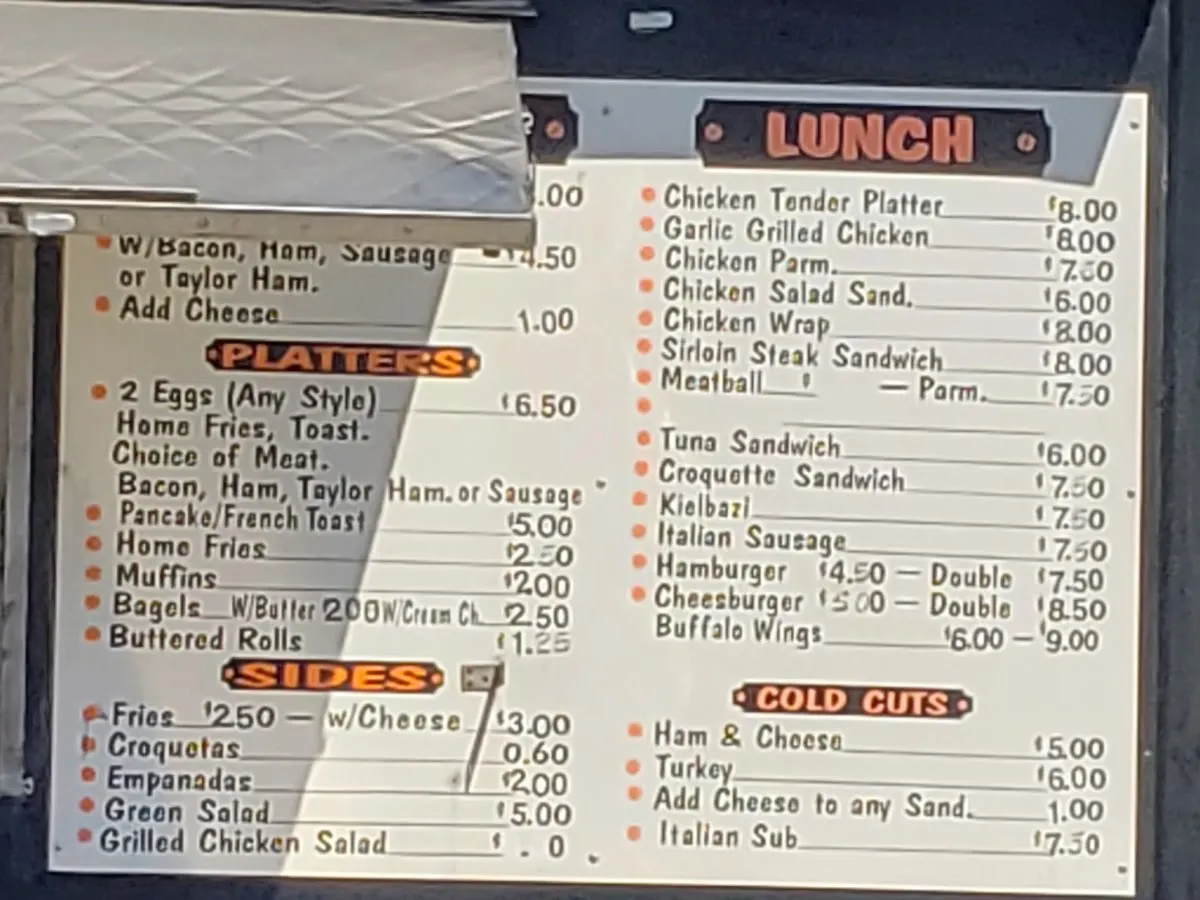 .00
W/Bacon, Ham, Sausage $4.50
or Taylor Ham.
Add Cheese 1.00
PLATTERS
2 Eggs (Any Style) $6.50
Home Fries, Toast.
Choice of Meat.
Bacon, Ham, Taylor Ham. or Sausage
Pancake/French Toast $5.00
Home Fries $2.50
Muffins $2.00
Bagels W/Butter 2.00 W/Cream Ch. $2.50
Buttered Rolls $1.25
SIDES
Fries $2.50 — w/Cheese $3.00
Croquetas 0.60
Empanadas $2.00
Green Salad $5.00
Grilled Chicken Salad $ . 0
LUNCH
Chicken Tender Platter $8.00
Garlic Grilled Chicken $8.00
Chicken Parm. $7.50
Chicken Salad Sand. $6.00
Chicken Wrap $8.00
Sirloin Steak Sandwich $8.00
Meatball $ — Parm. $7.50
Tuna Sandwich $6.00
Croquette Sandwich $7.50
Kielbazi $7.50
Italian Sausage $7.50
Hamburger $4.50 — Double $7.50
Cheesburger $5.00 — Double $8.50
Buffalo Wings $6.00 — $9.00
COLD CUTS
Ham & Cheese $5.00
Turkey $6.00
Add Cheese to any Sand. 1.00
Italian Sub $7.50